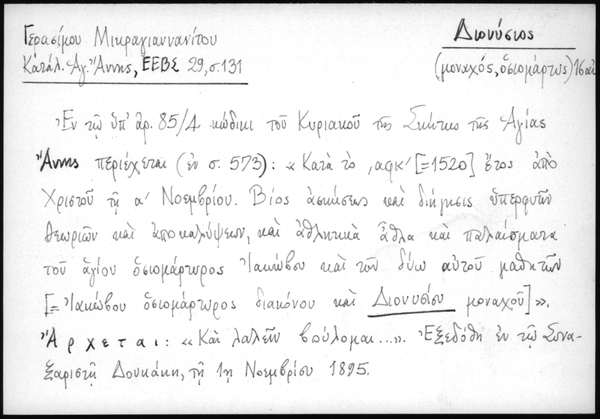 Γερασίμου Μικραγιαννανίτου
Διονύσιος
Κατάλ. Ἁγ. Ἄννης, ΕΕΒΣ 29, σ. 131
(μοναχός, ὁσιομάρτυς) 16 αἰ
Ἐν τῷ ὑπ' ἀρ. 85/4 κώδικι τοῦ Κυριακοῦ τῆς Σκήτεως τῆς Ἁγίας
Ἄννης περιέχεται (ἐν σ. 573): «Κατὰ τὸ ͵αφκ' [=1520] ἔτος ἀπὸ
Χριστοῦ τῇ α' Νοεμβρίου. Βίος ἀσκήσεως καὶ διήγησις ὑπερφυῶν
θεωριῶν καὶ ἀποκαλύψεων, καὶ ἀθλητικὰ ἆθλα καὶ παλαίσματα
τοῦ ἁγίου ὁσιομάρτυρος Ἰακώβου καὶ τῶν δύω αὐτοῦ μαθητῶν
[=Ἰακώβου ὁσιομάρτυρος διακόνου καὶ Διονυσίου μοναχοῦ]».
Ἄρχεται: «Καὶ λαλεῖν βούλομαι...». Ἐξεδόθη ἐν τῷ Συνα-
ξαριστῇ Δουκάκη, τῇ 1ῃ Νοεμβρίου 1895.